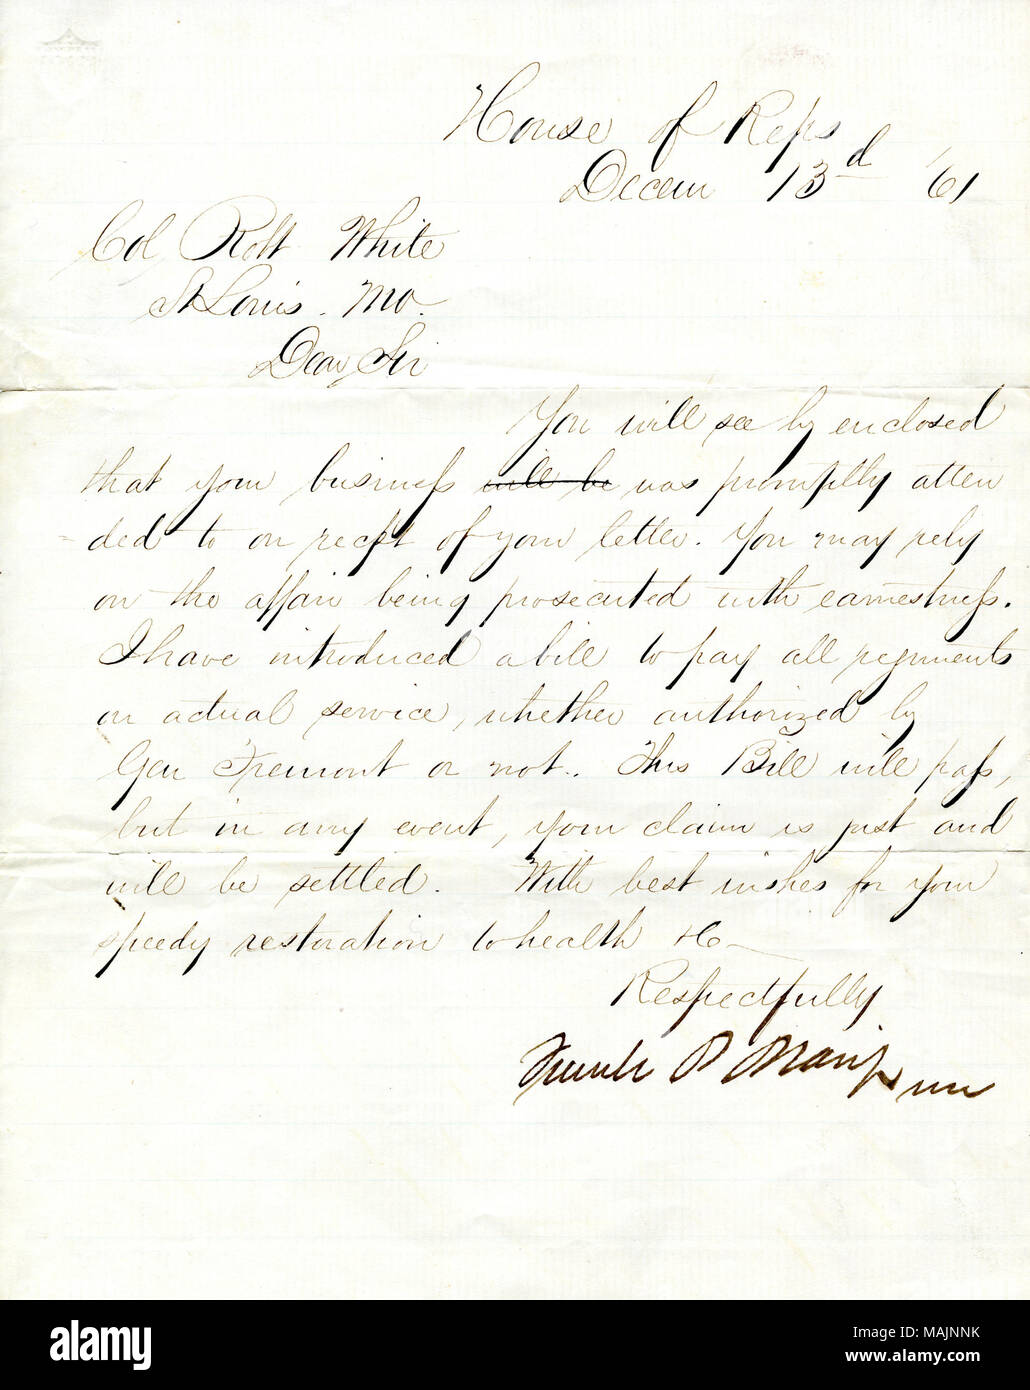 House of Reps
Decem 13d '61
Col Robt White
St Louis. Mo.
Dear Sir
You will see by enclosed
that your business will be was promptly atten
= ded to on rec'pt of your letter. You may rely
on the affair being prosecuted with earnestness.
I have introduced a bill to pay all regiments
on actual service, whether authorized by
Gen Fremont or not. This Bill will pass,
but in any event, your claim is just and
will be settled. With best wishes for your
speedy restoration to health &c
Respectfully
a alamy stock photo
MAJNNK
www.alamy.com